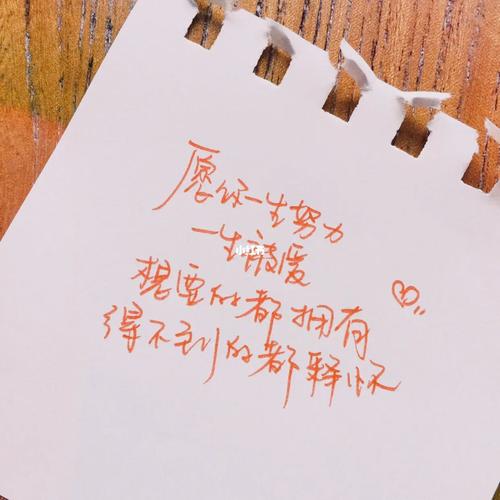 愿你一生努力
一生被爱
想要的都拥有
得不到的都释怀
小红书